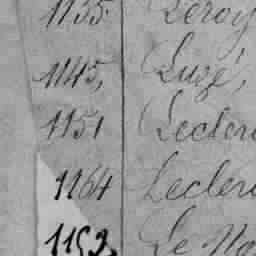 1135. Leroy
1145, Luzé,
1151 Lecler
1164 Lecler
1152, Le No